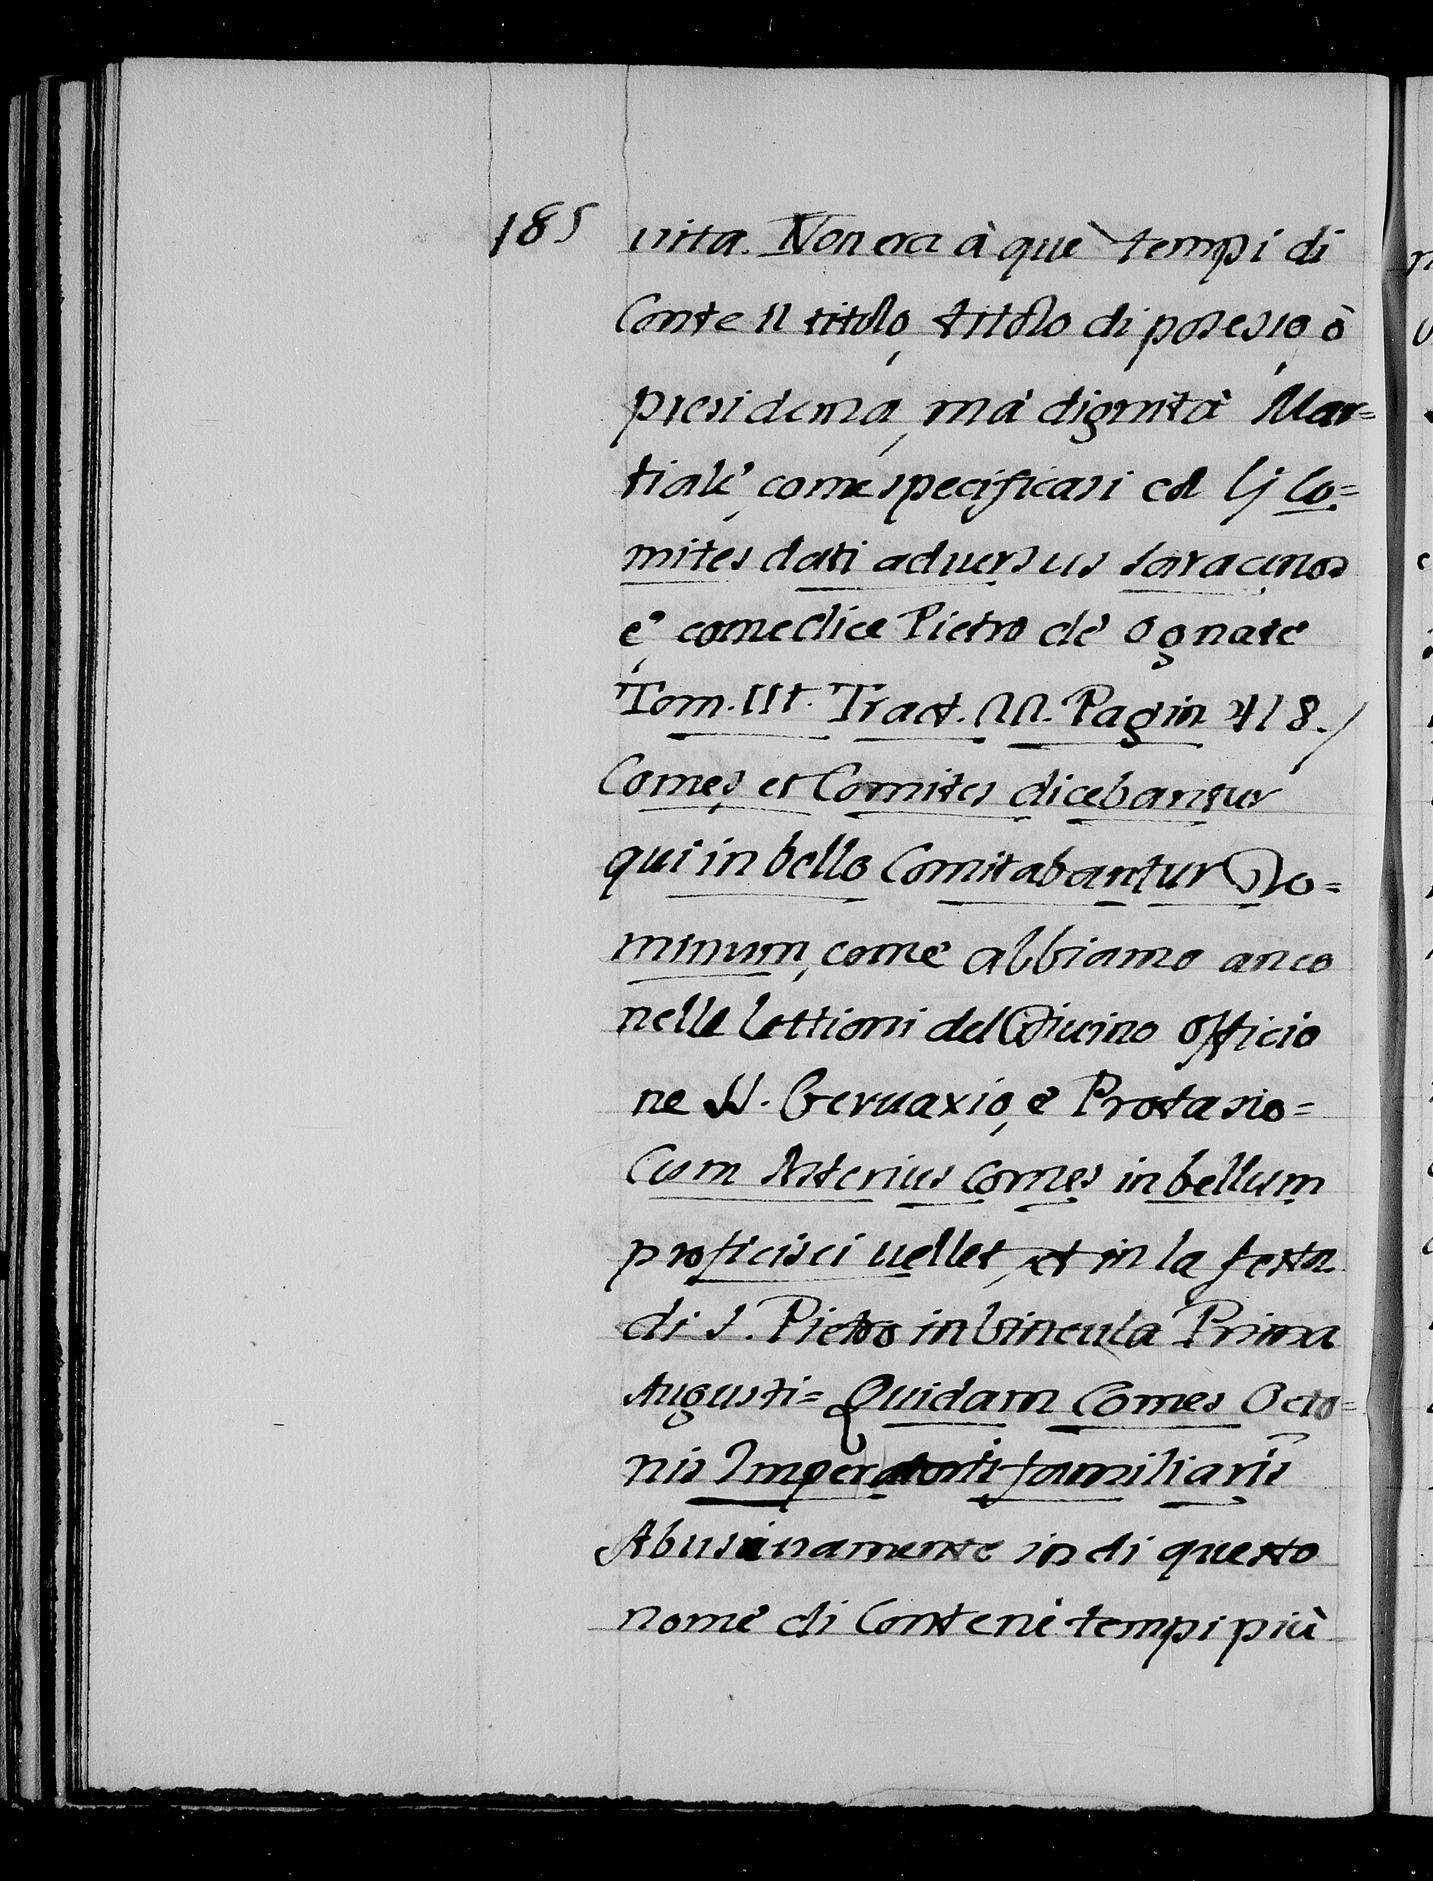 185
vita. Non era à què tempi di
Conte il titolo, titolo di posesso, ò
presidenza, mà dignità Mar=
tialè, come specificasi col lj Co=
mites dati adversus saracenos
è, come dice Pietro dè Ognatè
Tom. III. Tract. III. Pagin 418./
Comes, et Comites dicebantur
qui in bello Comitabantur Do=
minum, comè abbiamo anco
nelle lettioni del Divino officio
ne SS. Gervaxio, è Protasio=
Cum Asterius Comes in bellum
proficisci vellet, et in la festa
di S. Pietro in Vincula Prima
Augusti= Quidam Comes Octo=
nis Imperatoris familiaris
Abusivamente indi questo
nomè di Conte nè tempi più